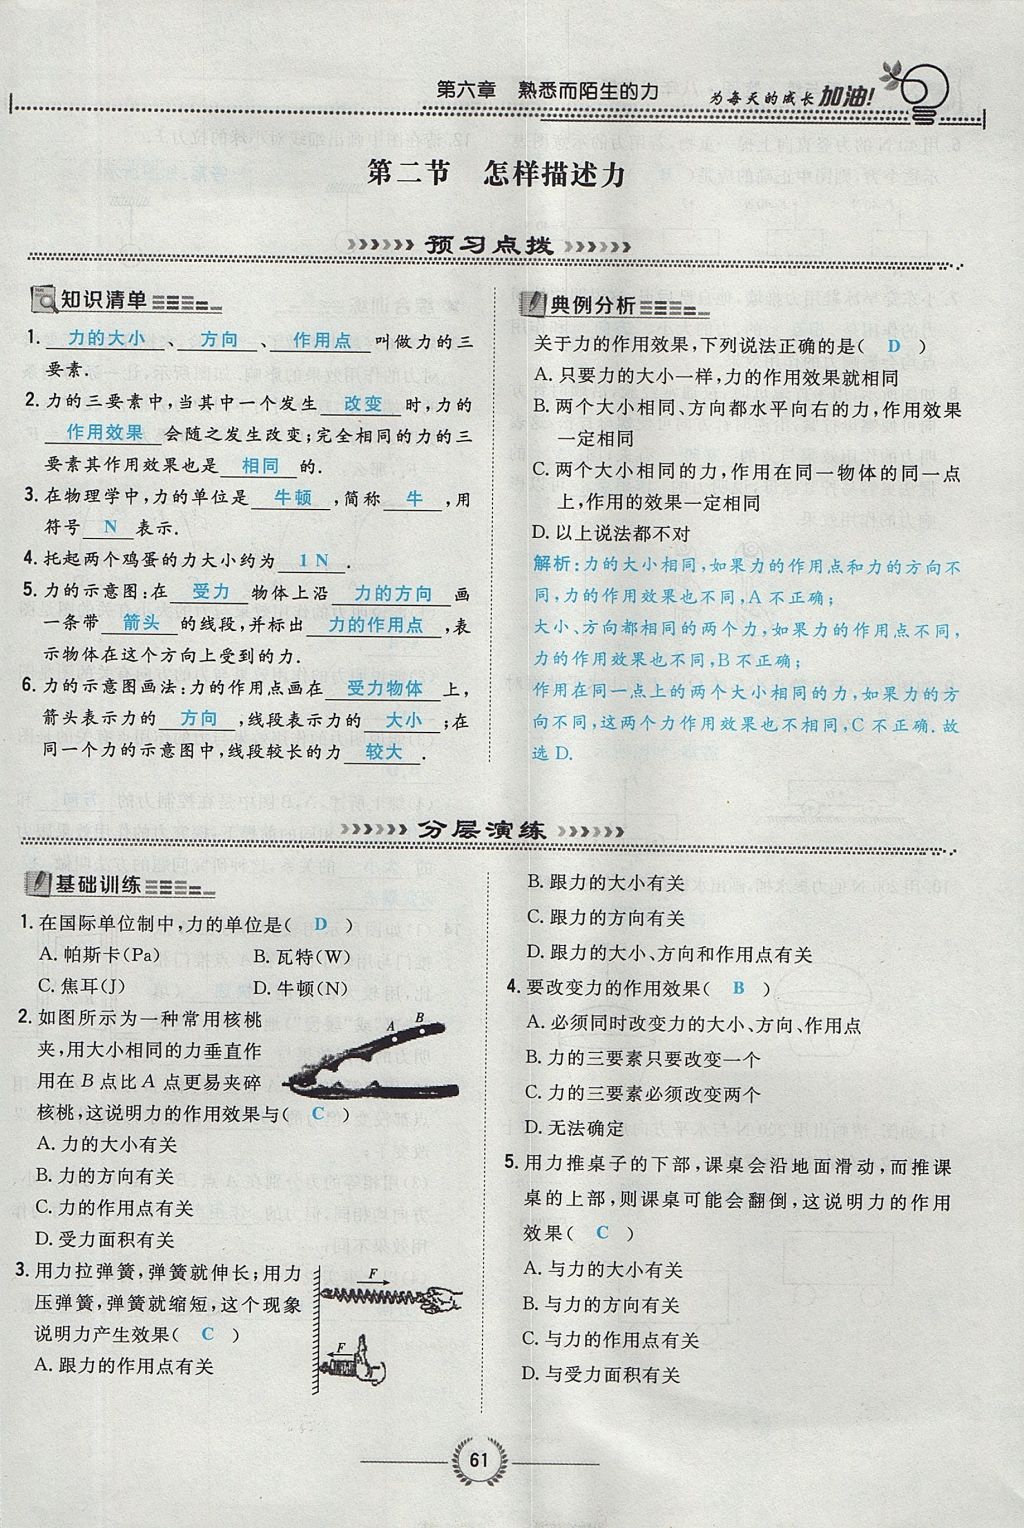 第六章 熟悉而陌生的力
为每天的成长加油!
第二节 怎样描述力
预习点拨
知识清单
1. 力的大小 、 方向 、 作用点 叫做力的三
要素.
2. 力的三要素中,当其中一个发生 改变 时,力的
作用效果 会随之发生改变;完全相同的力的三
要素其作用效果也是 相同 的.
3. 在物理学中,力的单位是 牛顿 ,简称 牛 ,用
符号 N 表示.
4. 托起两个鸡蛋的力大小约为 1 N .
5. 力的示意图:在 受力 物体上沿 力的方向 画
一条带 箭头 的线段,并标出 力的作用点 ,表
示物体在这个方向上受到的力.
6. 力的示意图画法:力的作用点画在 受力物体 上,
箭头表示力的 方向 ,线段表示力的 大小 ;在
同一个力的示意图中,线段较长的力 较大 .
典例分析
关于力的作用效果,下列说法正确的是( D )
A. 只要力的大小一样,力的作用效果就相同
B. 两个大小相同、方向都水平向右的力,作用效果
一定相同
C. 两个大小相同的力,作用在同一物体的同一点
上,作用的效果一定相同
D. 以上说法都不对
解析:力的大小相同,如果力的作用点和力的方向不
同,力的作用效果也不同,A不正确;
大小、方向都相同的两个力,如果力的作用点不同,
力的作用效果也不同,B不正确;
作用在同一点上的两个大小相同的力,如果力的方
向不同,这两个力作用效果也不相同,C不正确.故
选D.
分层演练
基础训练
1. 在国际单位制中,力的单位是( D )
A. 帕斯卡(Pa) B. 瓦特(W)
C. 焦耳(J) D. 牛顿(N)
2. 如图所示为一种常用核桃
夹,用大小相同的力垂直作
用在B点比A点更易夹碎
核桃,这说明力的作用效果与( C )
A B
A. 力的大小有关
B. 力的方向有关
C. 力的作用点有关
D. 受力面积有关
3. 用力拉弹簧,弹簧就伸长;用力
压弹簧,弹簧就缩短,这个现象
说明力产生效果( C )
F
F
A. 跟力的作用点有关
B. 跟力的大小有关
C. 跟力的方向有关
D. 跟力的大小、方向和作用点有关
4. 要改变力的作用效果( B )
A. 必须同时改变力的大小、方向、作用点
B. 力的三要素只要改变一个
C. 力的三要素必须改变两个
D. 无法确定
5. 用力推桌子的下部,课桌会沿地面滑动,而推课
桌的上部,则课桌可能会翻倒,这说明力的作用
效果( C )
A. 与力的大小有关
B. 与力的方向有关
C. 与力的作用点有关
D. 与受力面积有关
61